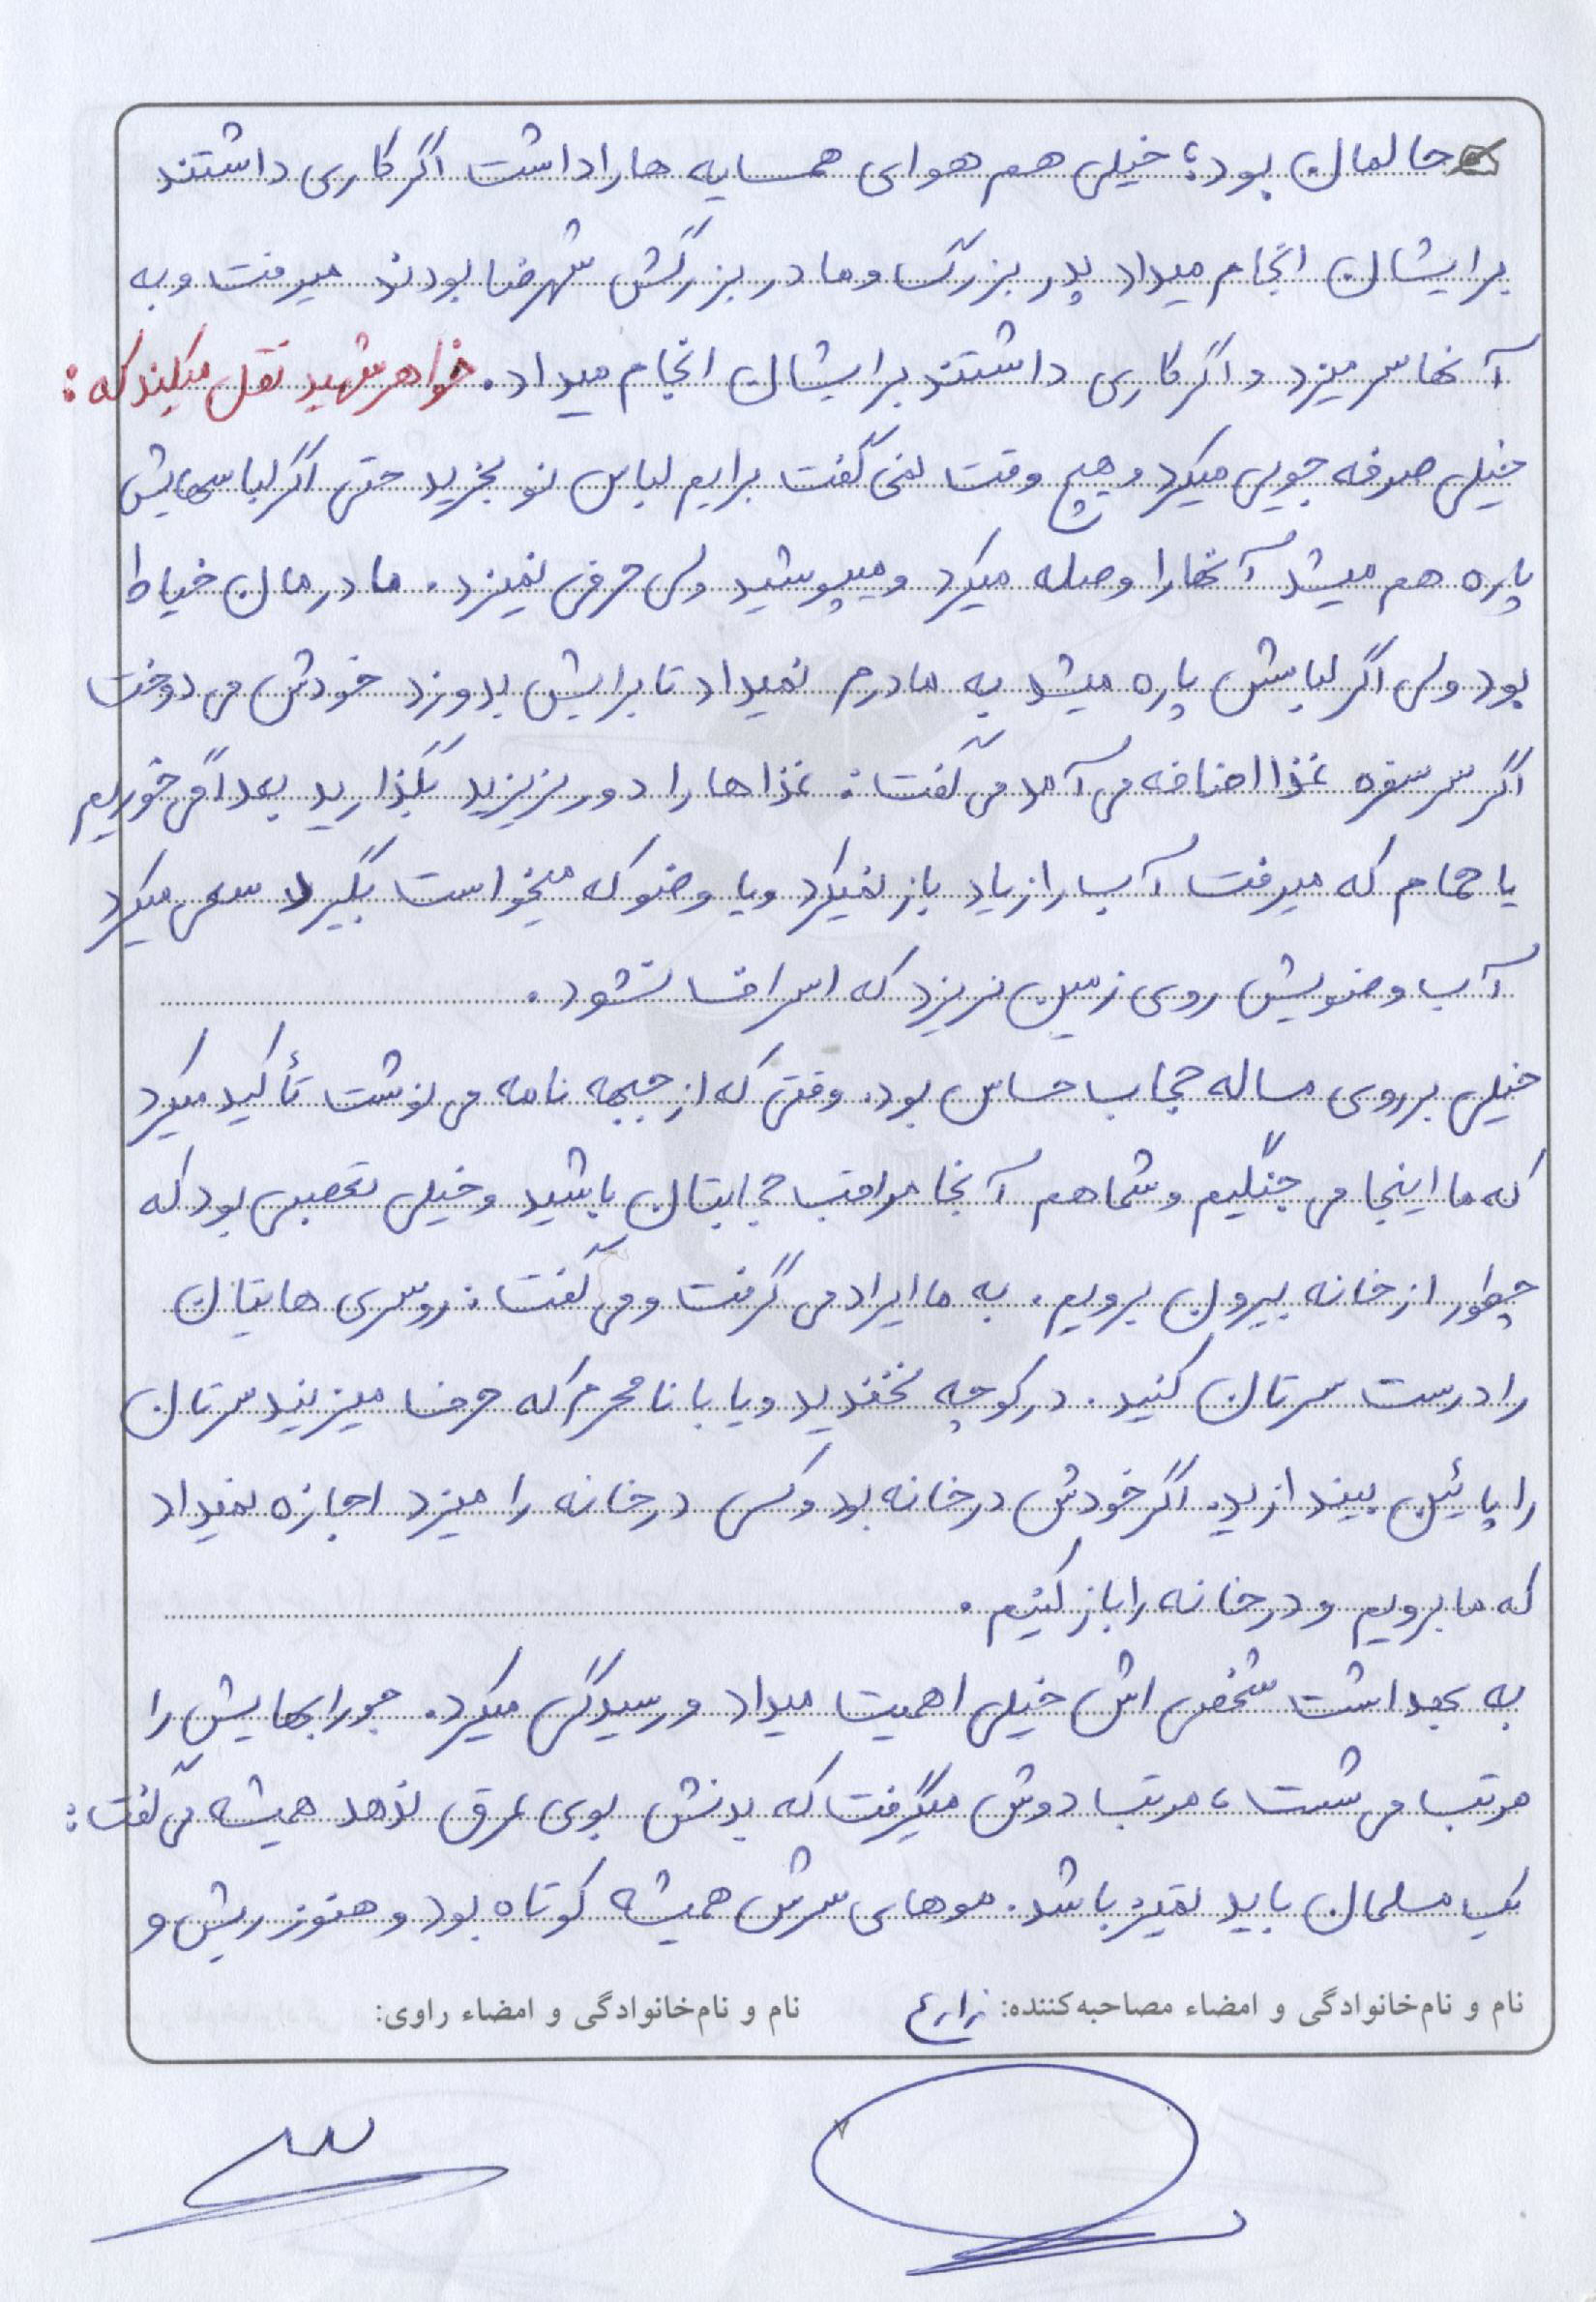 حالمان بود؛ خیلی هم هوای همسایه ها را داشت اگر کاری داشتند
برایشان انجام میداد پدر بزرگ و مادر بزرگش شهرضا بودند میرفت و به
آنها سر میزد و اگر کاری داشتند برایشان انجام میداد. خواهر شهید نقل میکند که :
خیلی صرفه جویی میکرد و هیچ وقت نمی گفت برایم لباس نو بخرید حتی اگر لباسهایش
پاره هم میشد آنها را وصله میکرد و میپوشید ولی حرفی نمیزد. مادرمان خیاط
بود ولی اگر لباسش پاره میشد به مادرم نمیداد تا برایش بدوزد خودش می دوخت
اگر سر سفره غذا اضافه می آمد می گفت : غذاها را دور نریزید بگذارید بعداً می خوریم
یا حمام که میرفت آب را زیاد باز نمیکرد و یا وضو که میخواست بگیرد سعی میکرد
آب وضویش روی زمین نریزد که اسراف نشود .
خیلی بر روی مساله حجاب حساس بود. وقتی که از جبهه نامه می نوشت تأکید میکرد
که ما اینجا می جنگیم و شما هم آنجا مراقب حجابتان باشید و خیلی تعصبی بود که
چطور از خانه بیرون برویم. به ما ایراد می گرفت و می گفت : روسری هایتان
را درست سرتان کنید. در کوچه نخندید و یا با نامحرم که حرف میزنید سرتان
را پائین بیندازید. اگر خودش در خانه بود و کسی در خانه را میزد اجازه نمیداد
که ما برویم و در خانه را باز کنیم .
به بهداشت شخصی اش خیلی اهمیت میداد و رسیدگی میکرد. جورابهایش را
مرتب می شست، مرتب دوش میگرفت که بدنش بوی عرق ندهد همیشه می گفت :
یک مسلمان باید تمیز باشد. موهای سرش همیشه کوتاه بود و هنوز ریش و
نام و نام‌خانوادگی و امضاء مصاحبه‌کننده: زارع نام و نام‌خانوادگی و امضاء راوی:
۷